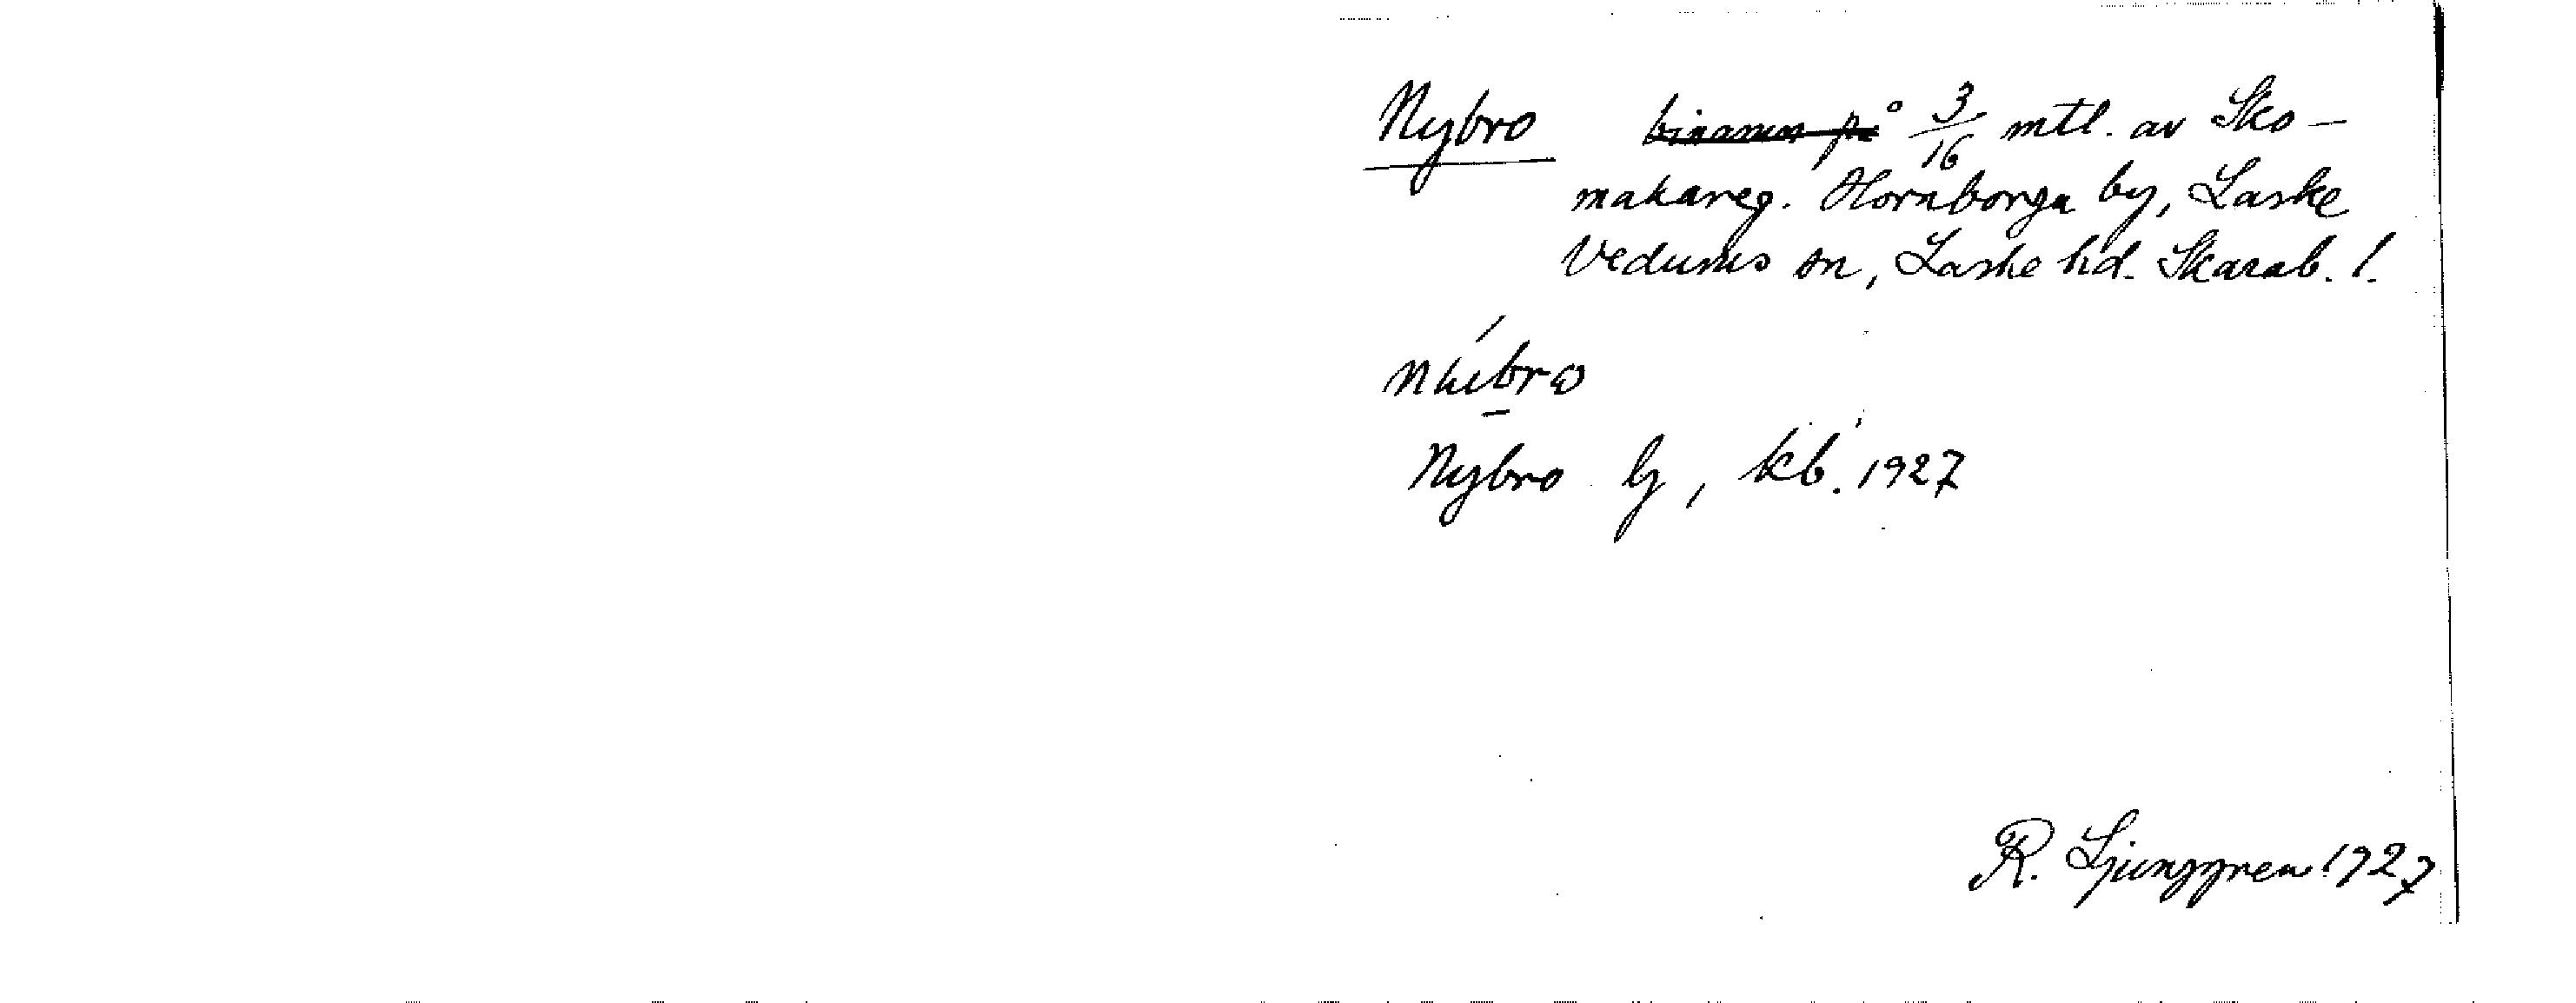 Nybro binamn på 3/16 mtl. av Sko-
makareg. Hornborga by, Laske
Vedums sn, Laske hd. Skarab. l.
Nybro lg, kb. 1927
R. Ljunggren 1927